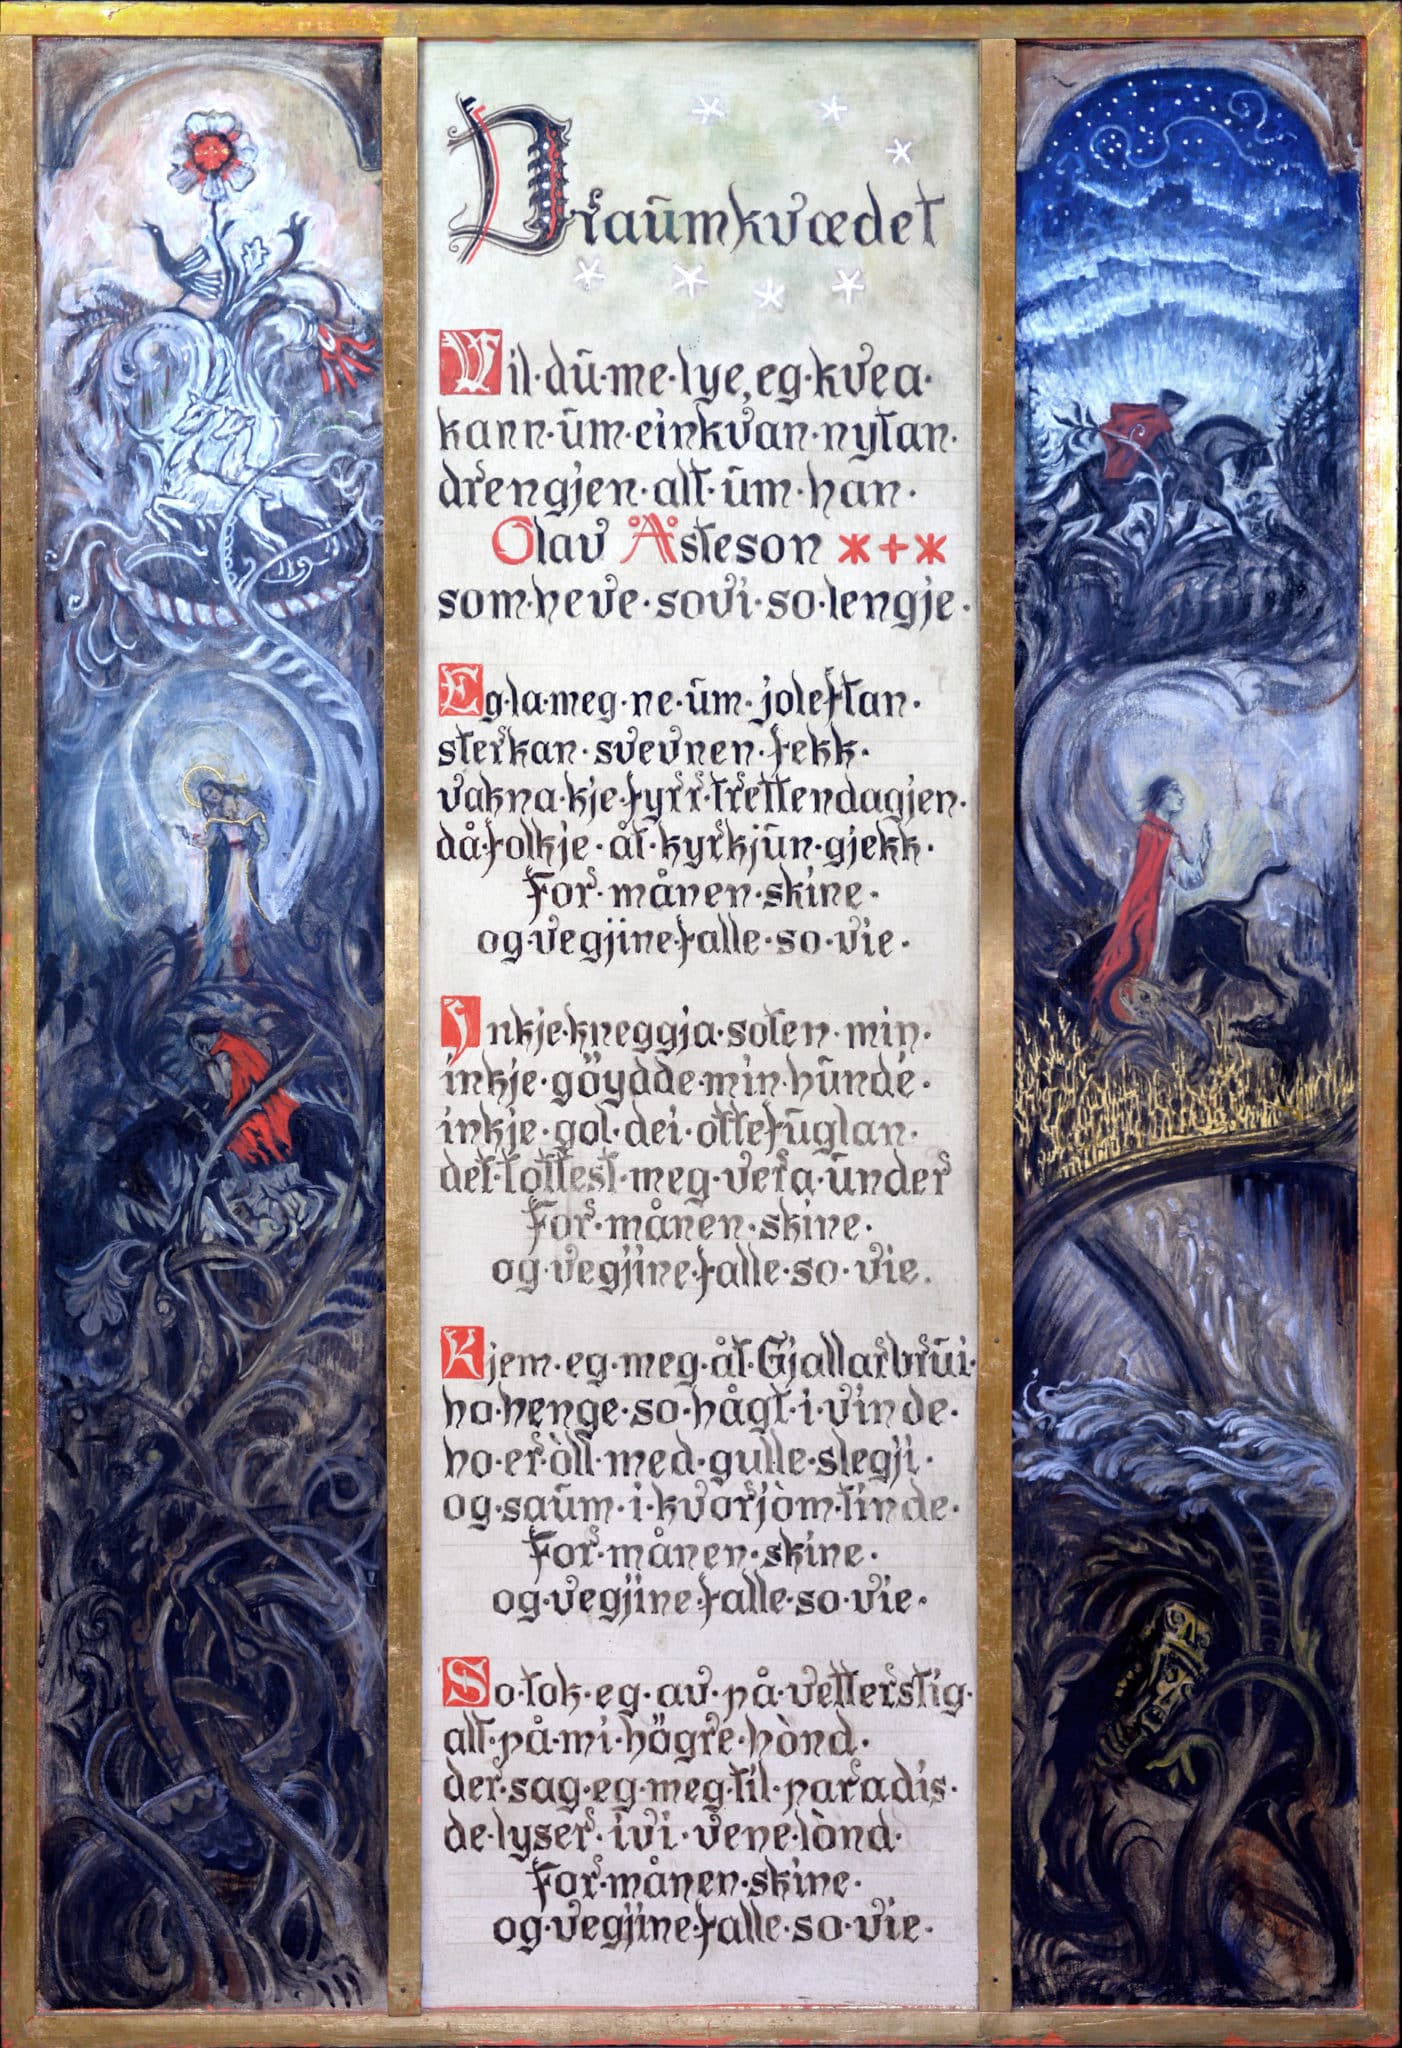 Draumkvædet
Vil·du·me·lye, eg·kvea·
kann·um·einkvan·nytan·
drengjen·alt·um·han·
Olav Åsteson
som·heve·sovi·so·lengje·
Eg·la·meg·ne·um·joleftan·
sterkan·svevnen·fekk·
vakna·kje·fyrr·trettendagjen·
då·folkje·åt·kyrkjun·gjekk·
For·månen·skine·
og·vegjine·falle·so·vie·
Inkje·kneggja·soten·min·
inkje·göydde·min·hunde·
inkje·gol·dei·ottefuglan·
det·tottest·meg·vera·under
For·månen·skine·
og·vegjine·falle·so·vie.
Kjem·eg·meg·åt·Gjallarbrui·
ho·henge·so·hågt·i·vinde·
ho·er·òll·med·gulle·slegji·
og·saum·i·kvorjòm·tinde·
For·månen·skine·
og·vegjine·falle·so·vie·
So·tok·eg·av·på·vetterstig·
alt·på·mi·högre·hònd·
der·sag·eg·meg·til·paradis·
de·lyser·ivi·vene·lònd·
For·månen·skine·
og·vegjine·falle·so·vie·